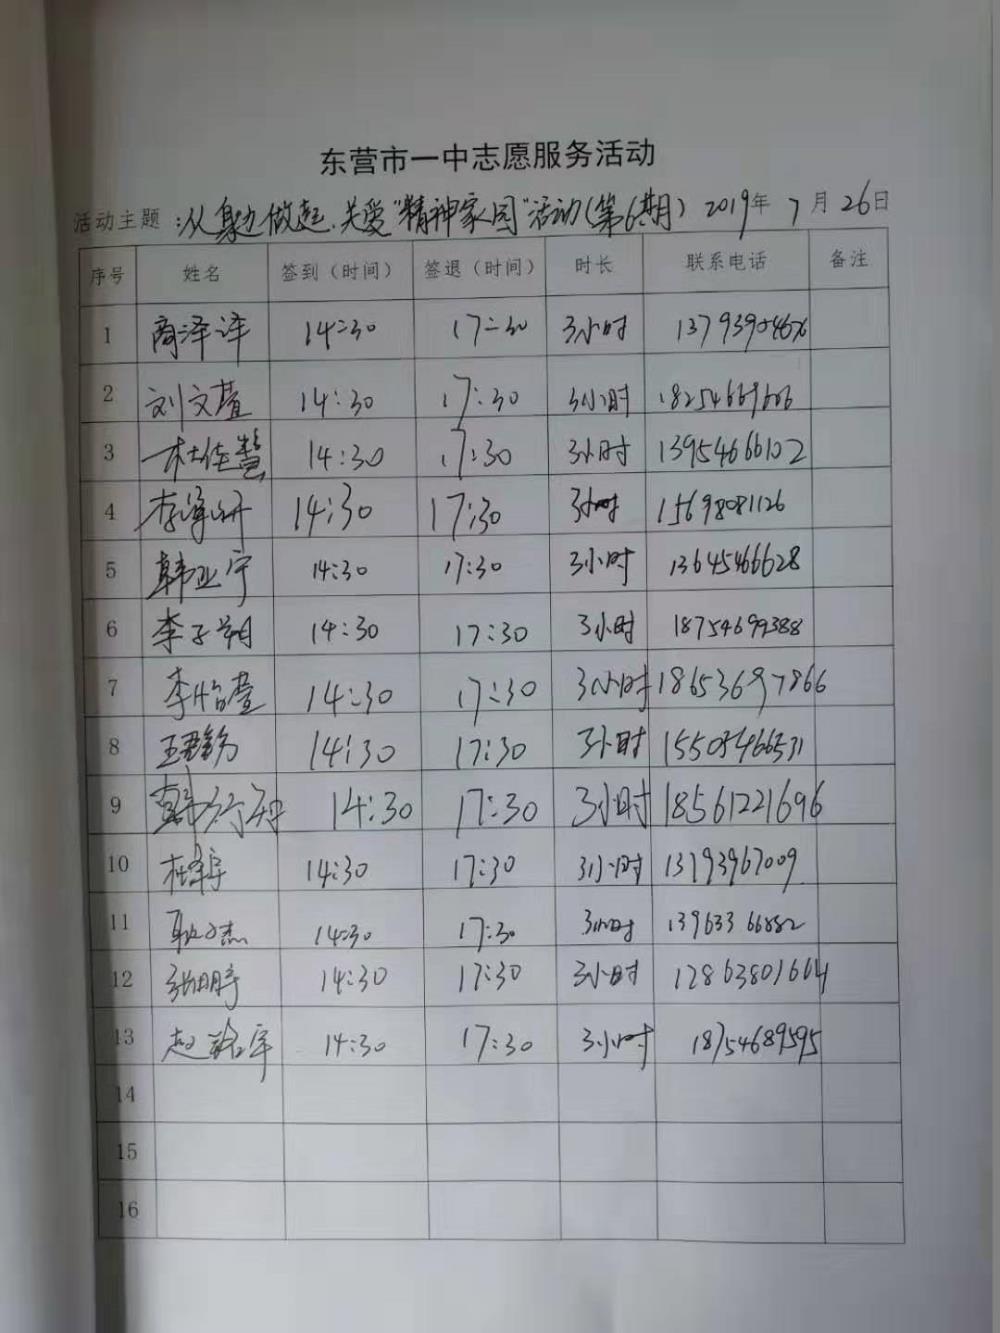 东营市一中志愿服务活动
活动主题：从身边做起.关爱"精神家园"活动(第6期) 2019年 7月26日
序号 姓名 签到（时间） 签退（时间） 时长 联系电话 备注
1 商泽泽 14:30 17:30 3小时
2 刘文萱 14:30 17:30 3小时 18254669666
3 杜佳慧 14:30 17:30 3小时 13954666102
4 14:30 17:30 3小时 15698081126
5 韩亚宁 14:30 17:30 3小时 13645466628
6 李子朔 14:30 17:30 3小时 18754699388
7 李怡萱 14:30 17:30 3小时 18653697866
8 14:30 17:30 3小时 15505466531
9 14:30 17:30 3小时 18561221696
10 14:30 17:30 3小时 13793967009
11 14:30 17:30 3小时 13963366882
12 14:30 17:30 3小时 12863801664
13 14:30 17:30 3小时 18754689595
14
15
16